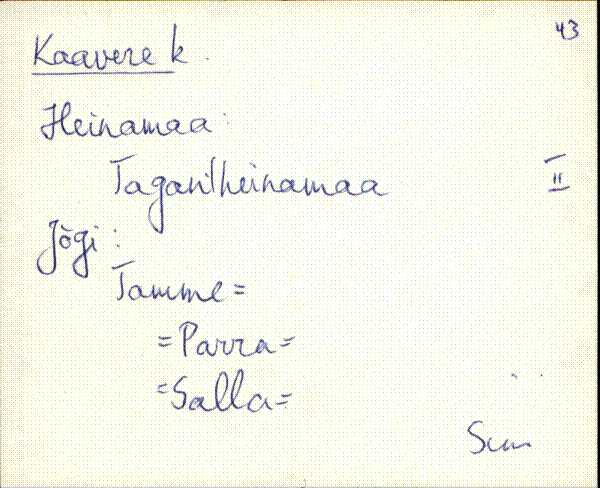 43
Kaavere k.
Heinamaa:
Taganiheinamaa
II
Jõgi:
Tamme=
=Parra=
=Salla=